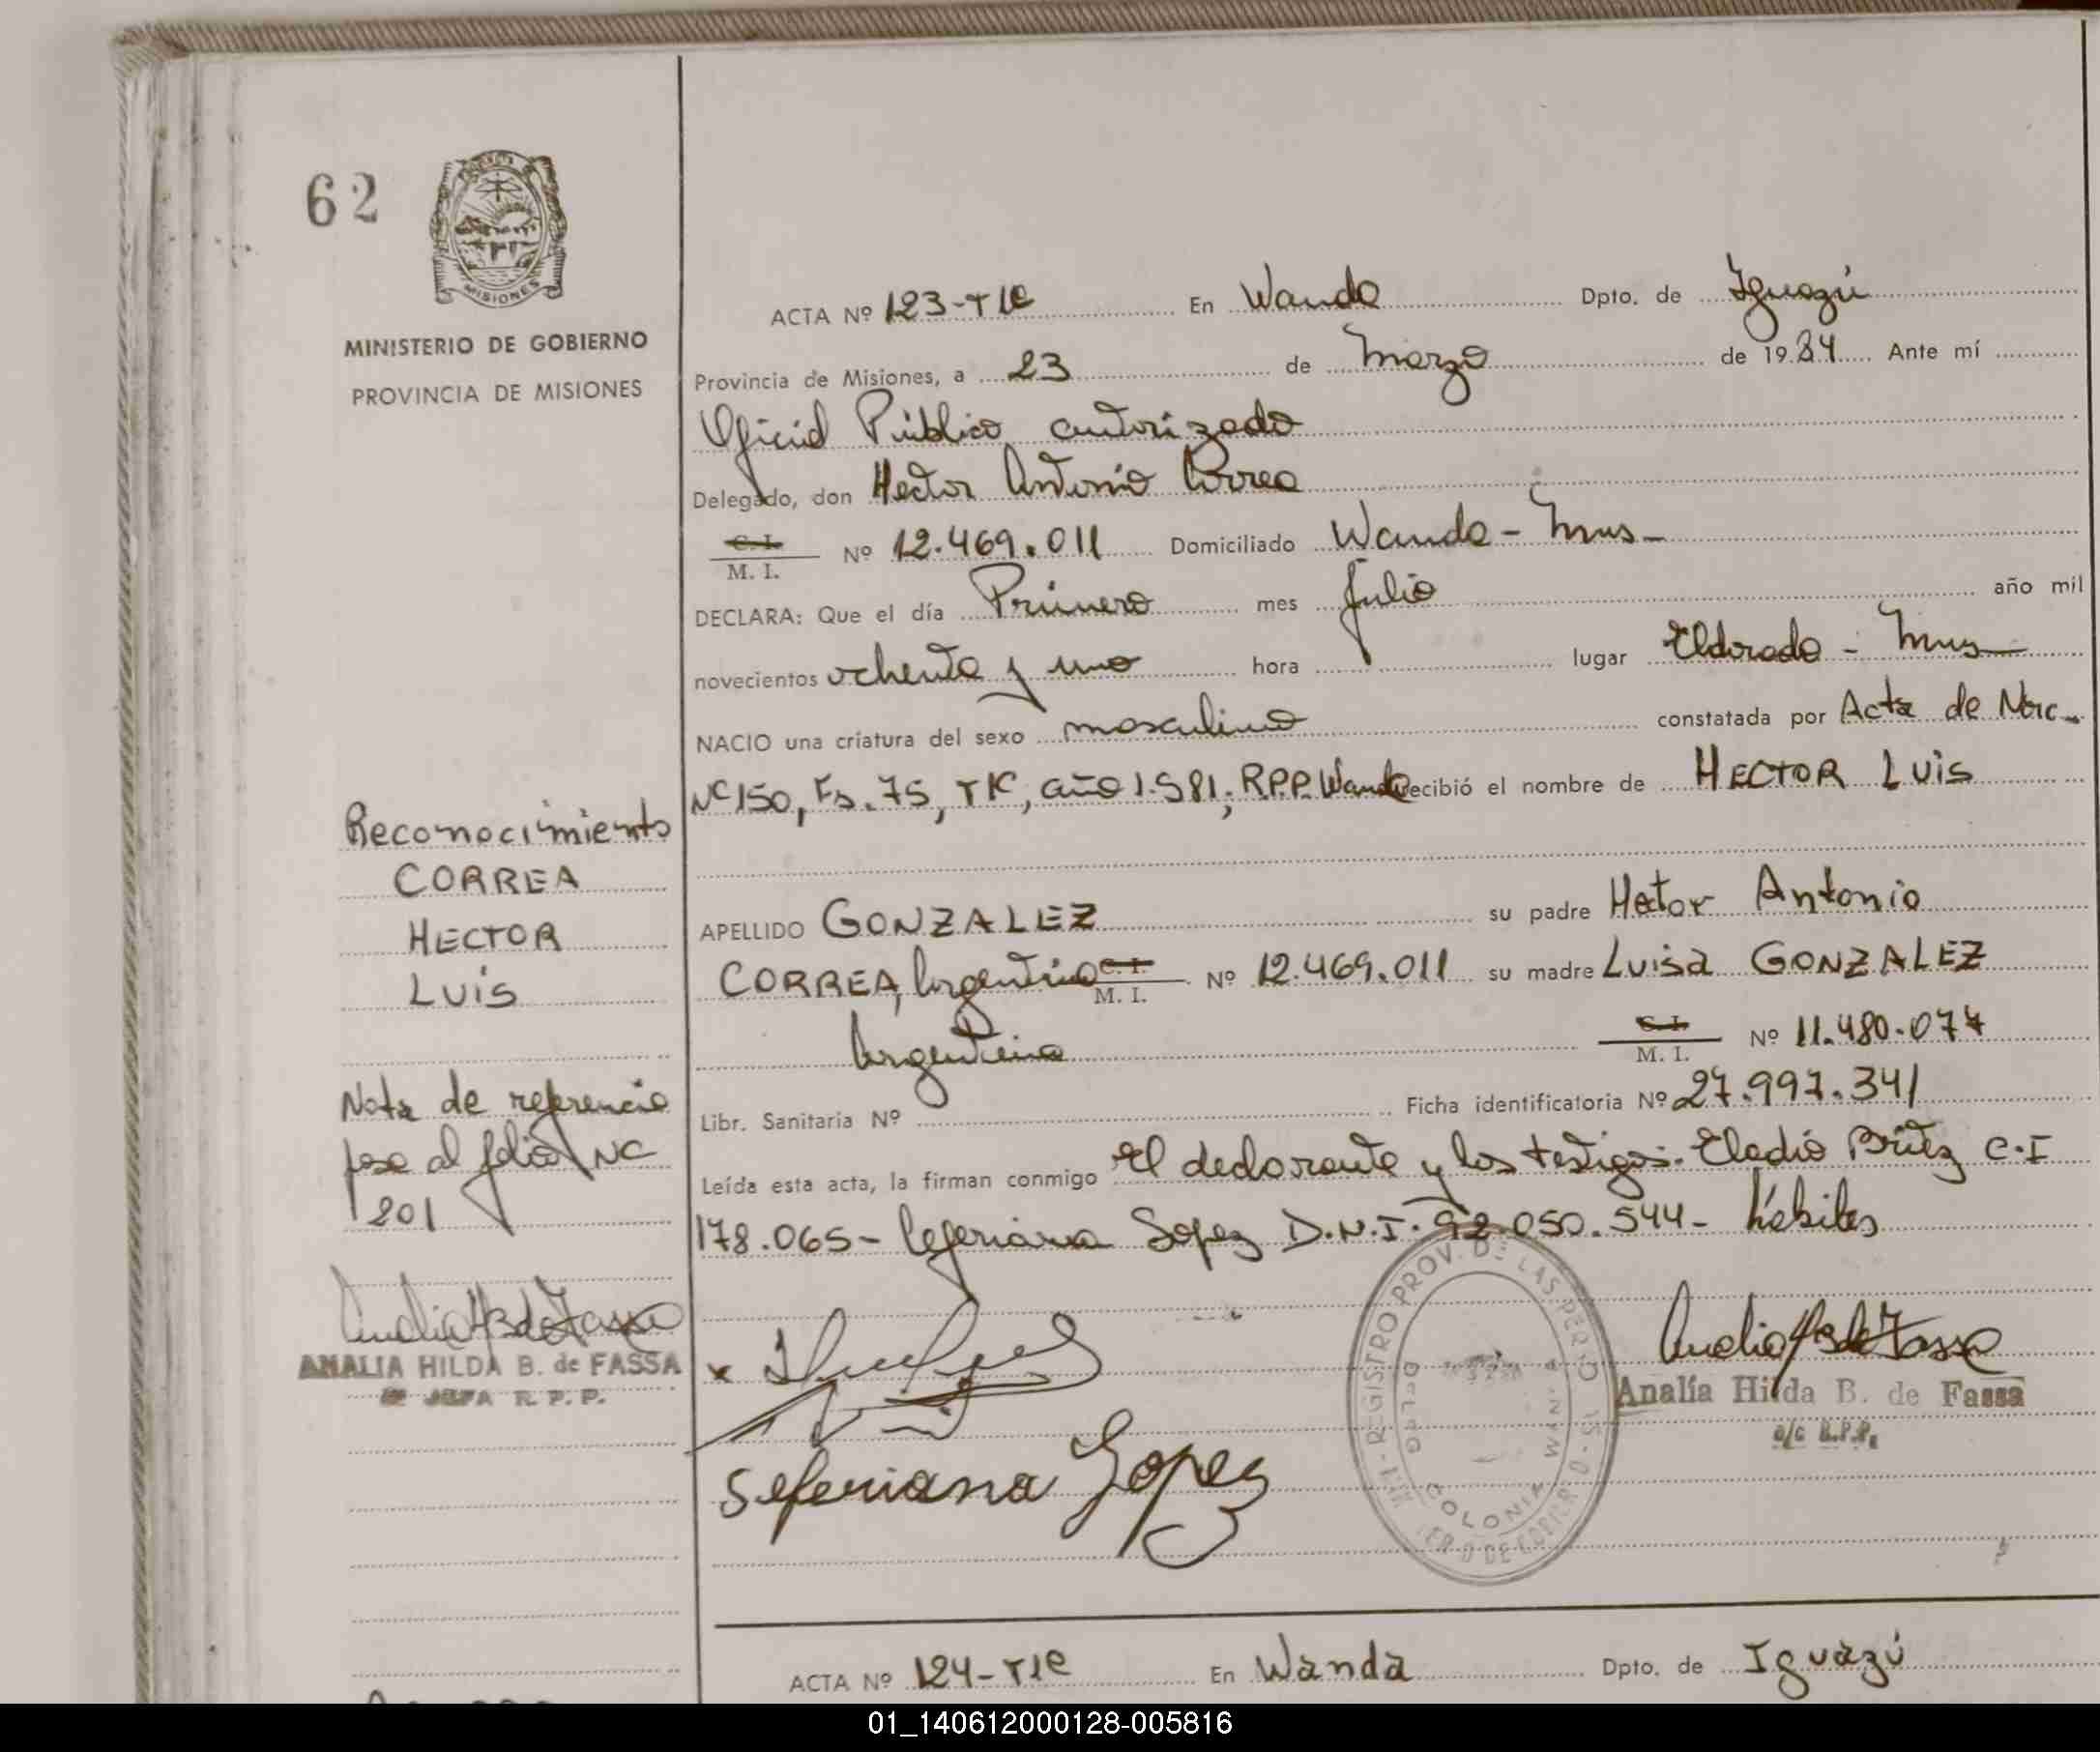 62
MISIONES
MINISTERIO DE GOBIERNO
PROVINCIA DE MISIONES
Reconocimiento
CORREA
HECTOR
LUIS
Nota de referencia
pasa al folio Nº
201
ANALIA HILDA B. de FASSA
JEFA R. P. P.
ACTA Nº 123-T1º En Wanda Dpto. de Iguazú
Provincia de Misiones, a 23 de Marzo de 1984 Ante mí
Oficial Público autorizado
Delegado, don Hector Antonio Correa
C. I.
M. I. Nº 12.469.011 Domiciliado Wanda - Mnes-
DECLARA: Que el día Primero mes Julio año mil
novecientos ochenta y uno hora lugar Eldorado - Mnes
NACIO una criatura del sexo masculino constatada por Acta de Nac-
Nº150, Fs. 75, T1º, año 1.981, R.P.P. Wanda recibió el nombre de HECTOR LUIS
APELLIDO GONZALEZ su padre Hector Antonio
CORREA, Argentino C. I. M. I. Nº 12.469.011 su madre Luisa GONZALEZ
Argentina C. I. M. I. Nº 11.480.074
Libr. Sanitaria Nº Ficha identificatoria Nº 27.997.341
Leída esta acta, la firman conmigo El declarante y los testigos: Eladio Britez C.I
178.065- Ceferiana Lopez D.N.I. 92.050.544- hábiles
Seferiana Lopez
REGISTRO PROV. DE LAS PER
COLONIA WANDA
Analía Hilda B. de Fassa
a/c R.P.P.
ACTA Nº 124-T1º En Wanda Dpto. de Iguazú
01_140612000128-005816